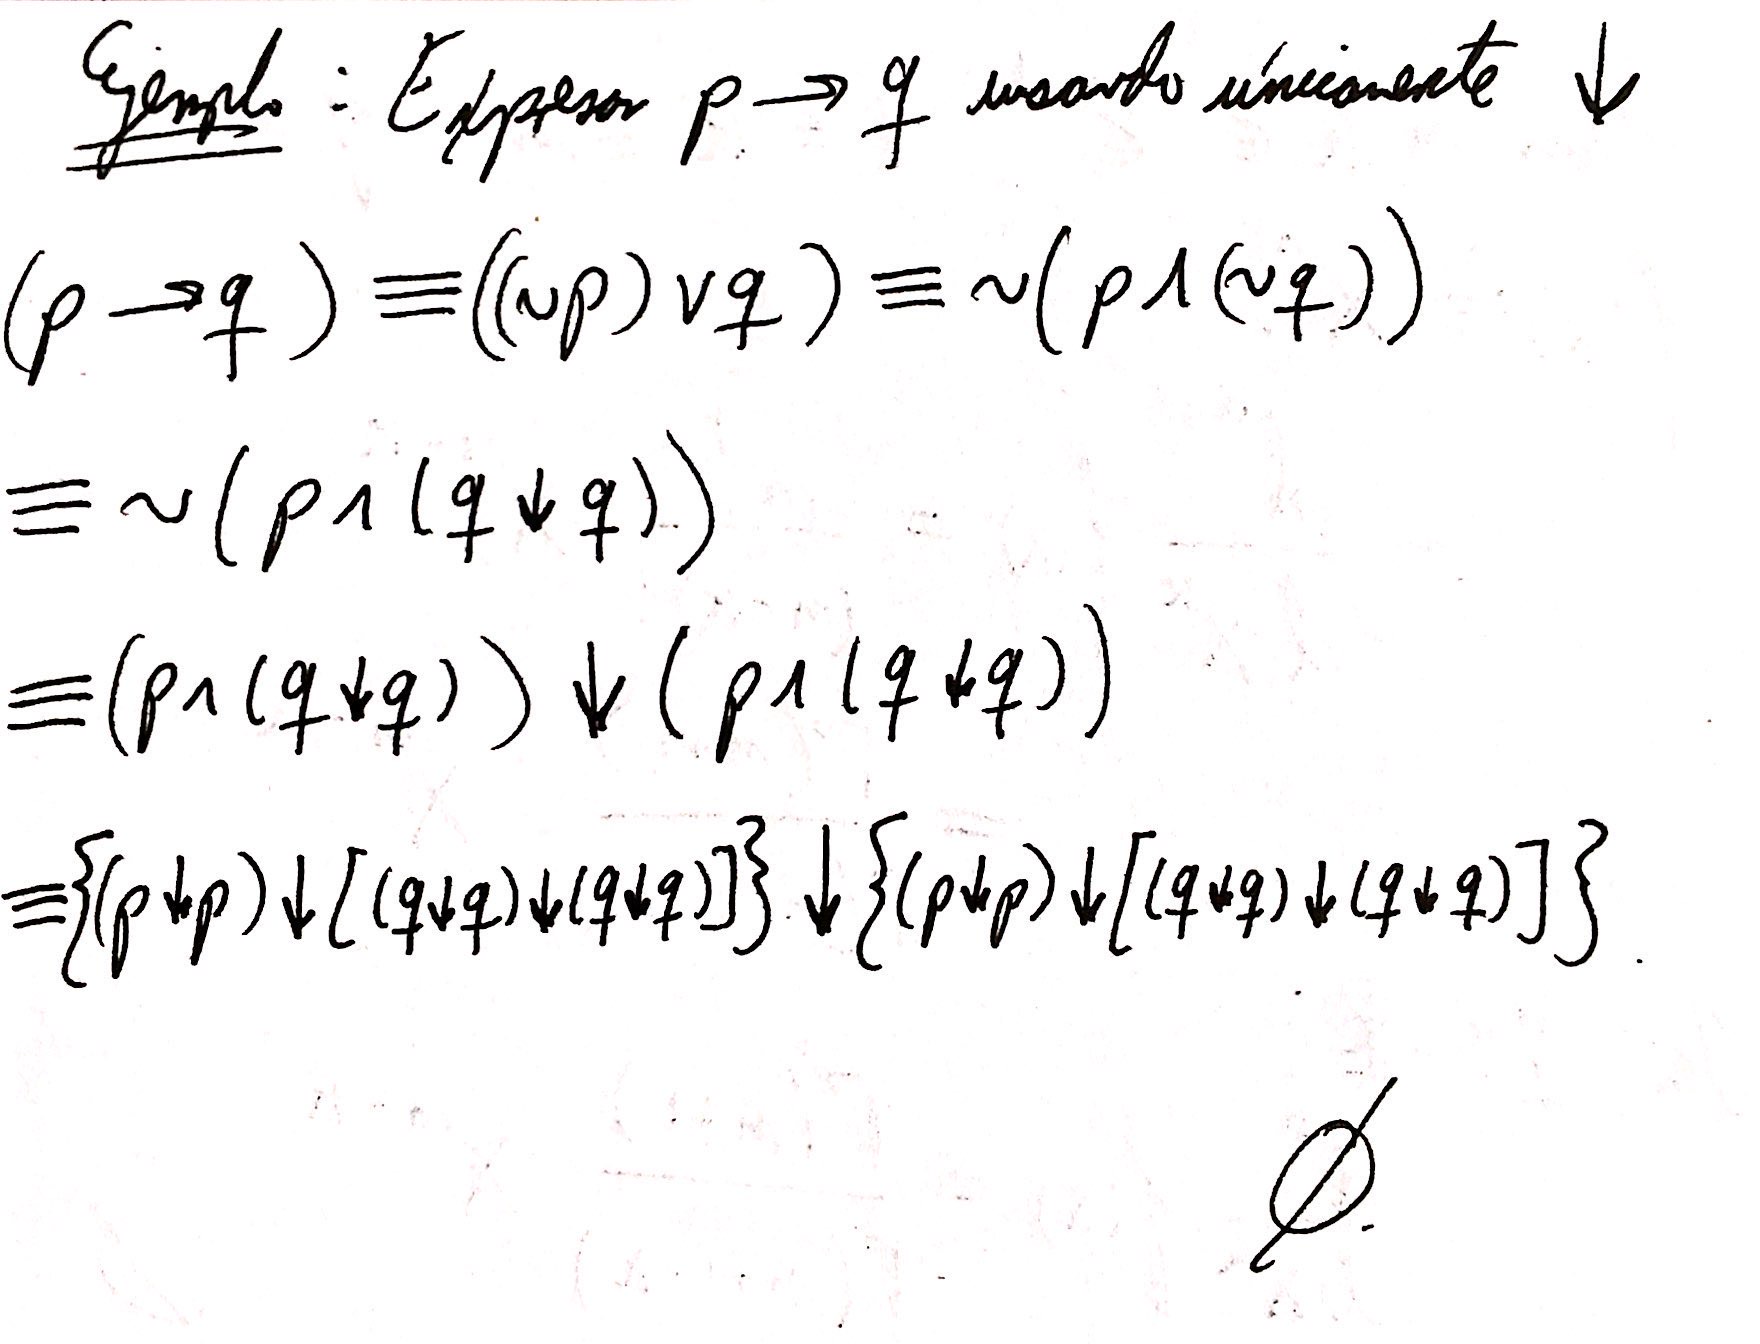 Ejemplo : Expresar p → q usando únicamente ↓
(p → q) ≡ ((∼p) ∨ q) ≡ ∼(p ∧ (∼q))
≡ ∼(p ∧ (q ↓ q))
≡ (p ∧ (q ↓ q)) ↓ (p ∧ (q ↓ q))
≡ {(p ↓ p) ↓ [(q ↓ q) ↓ (q ↓ q)]} ↓ {(p ↓ p) ↓ [(q ↓ q) ↓ (q ↓ q)]}.
∅.